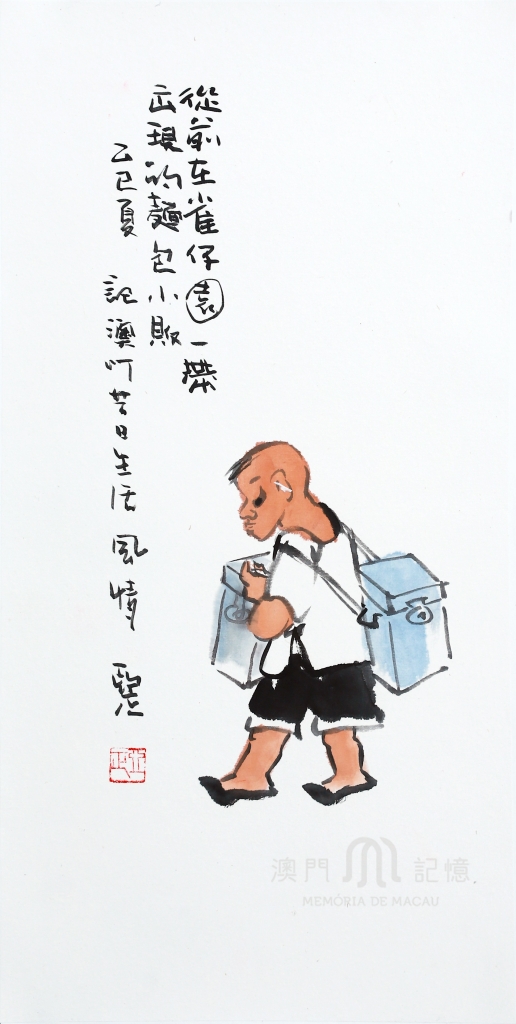 從前在雀仔園一帶
出現的麵包小販
乙巳夏 記澳門昔日生活風情
澳門 記憶
MEMÓRIA DE MACAU